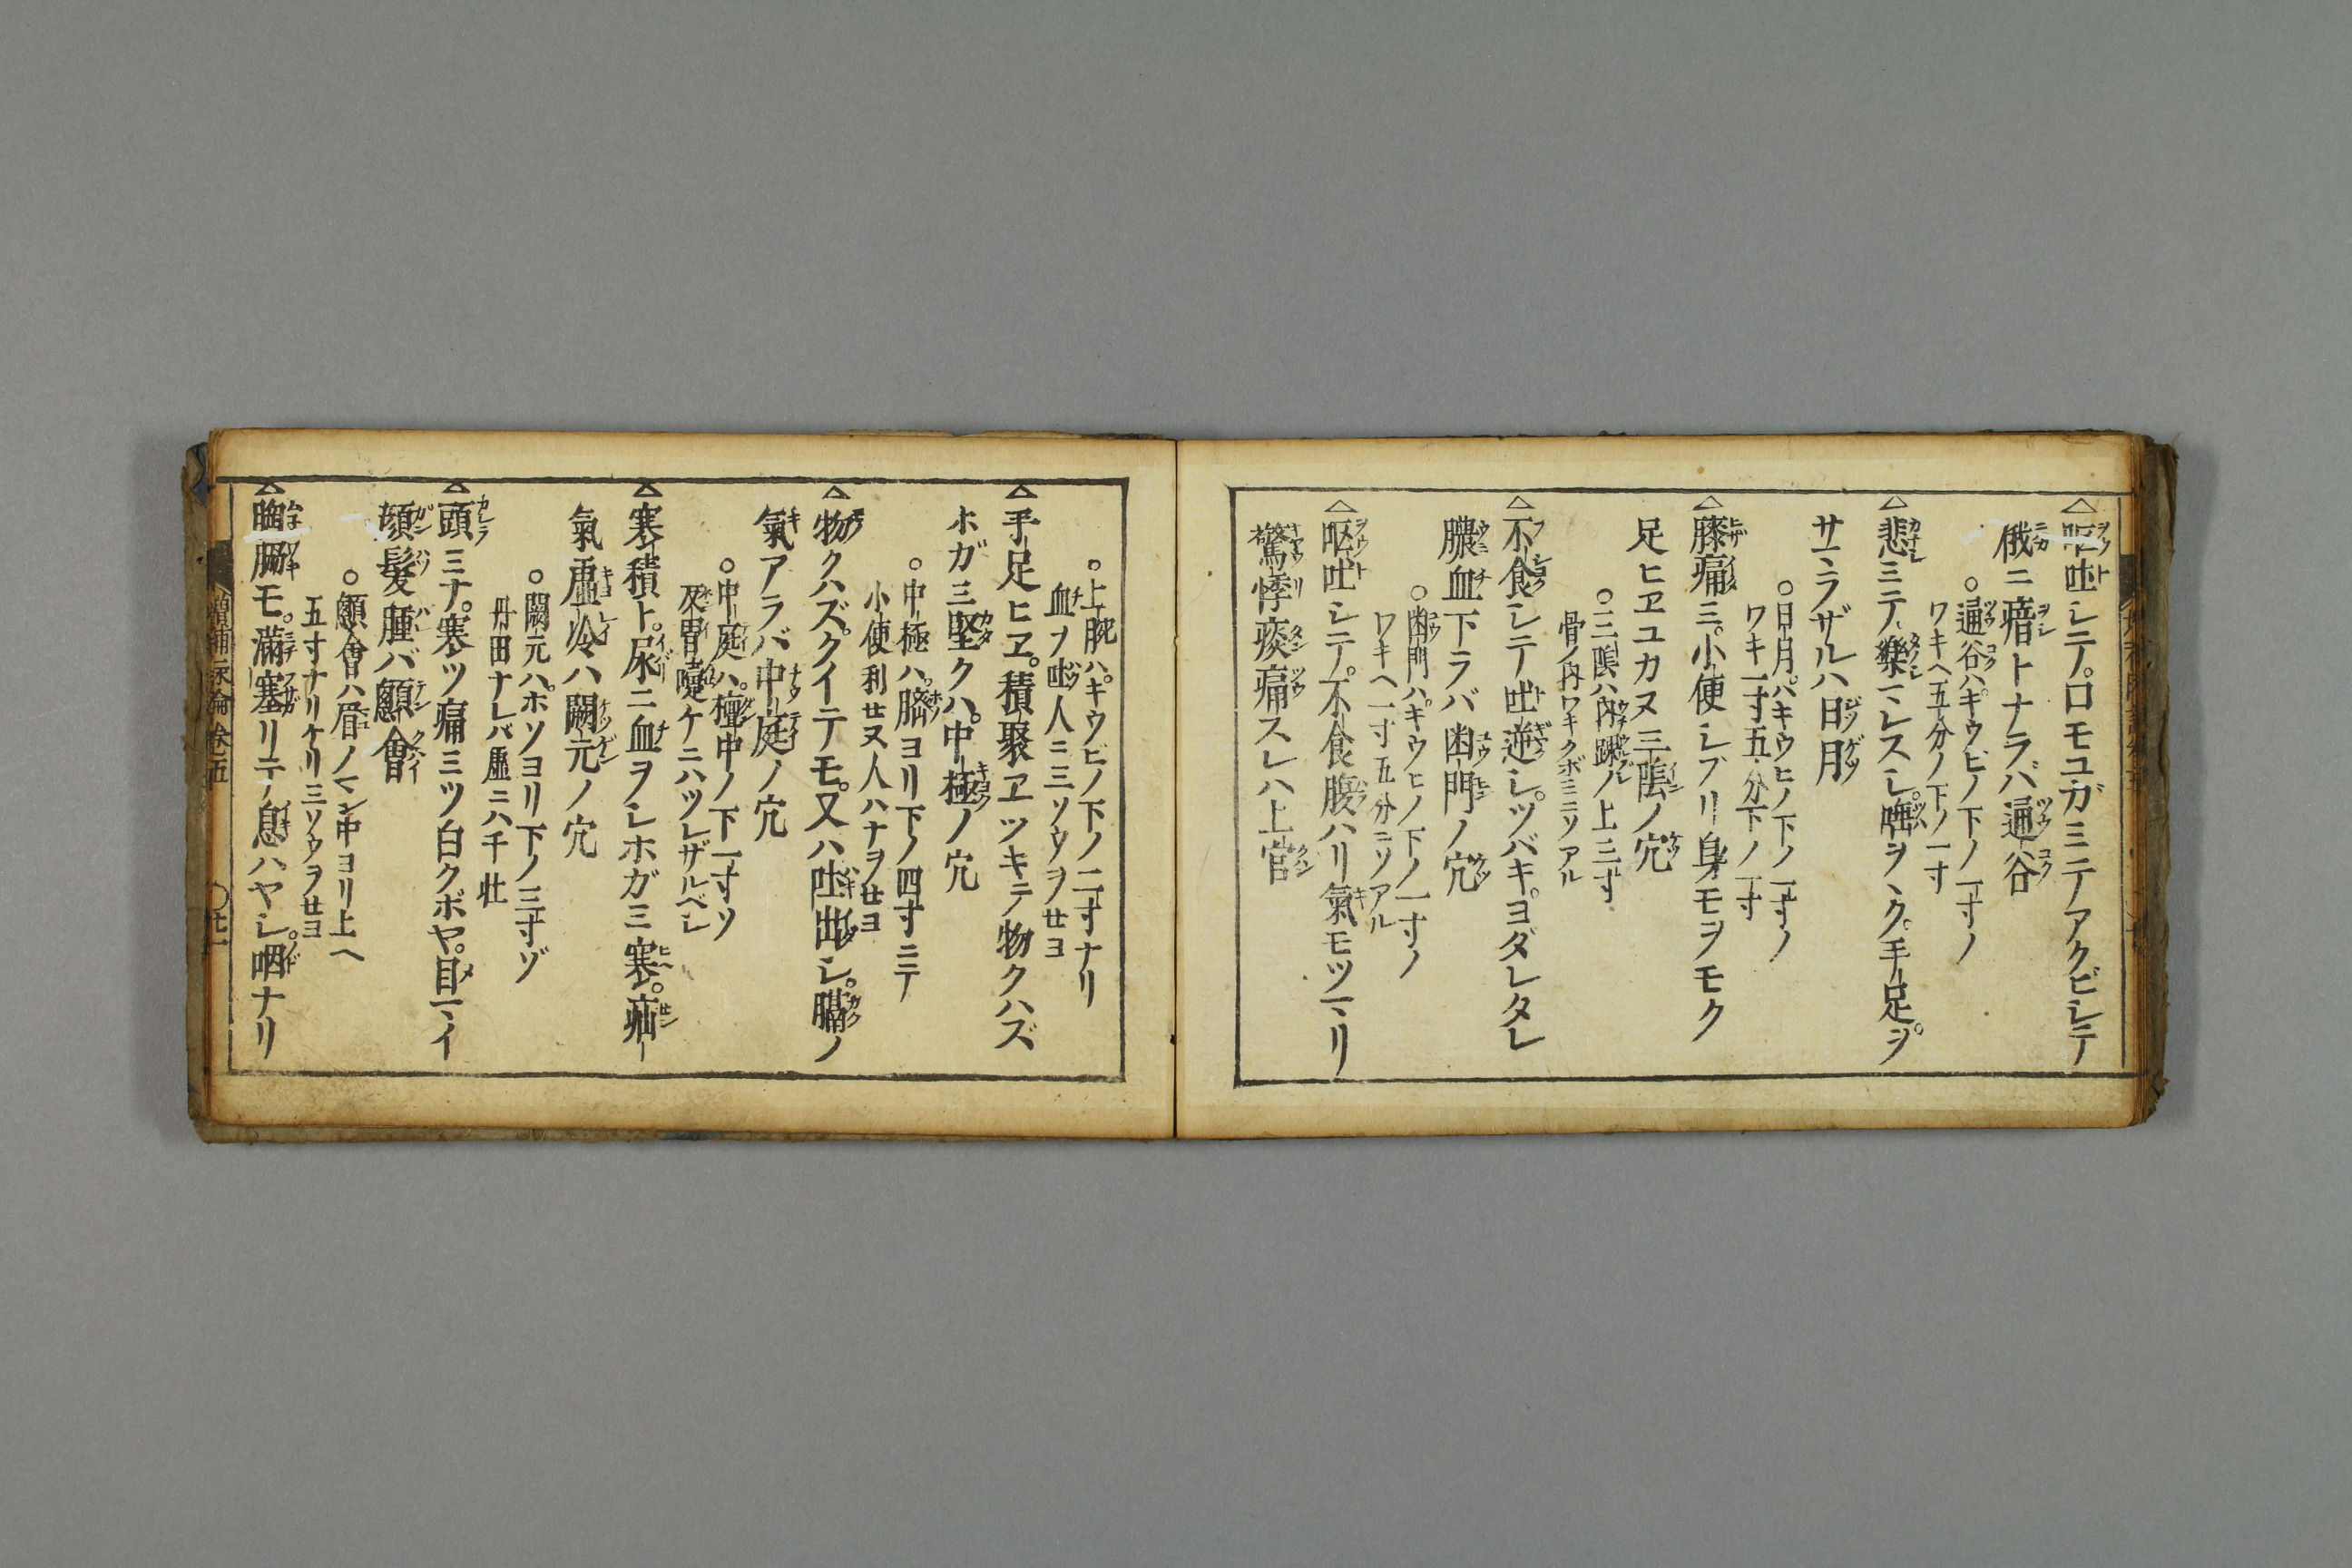 △嘔吐シテ。口モユガミテアクビシテ
俄ニ瘖トナラバ通谷
○通谷ハ。キウビノ下ノ一寸ノ
ワキヘ五分ノ下ノ一寸
△悲ミテ、樂マレスレ。嘔ヲヽク。手足。ヲ
サマラザルハ日月
○日月ハ。キウヒノ下ノ一寸ノ
ワキ一寸五分下ノ一寸
△膝痛ミ。小便シブリ身モヲモク
足ヒヱユカヌ三陰ノ穴
○三陰ハ内踝ノ上三寸
骨ノ内ワキクボミニソアル
△不食シテ吐逆シ。ツバキ。ヨダレタレ
膿血下ラバ幽門ノ穴
○幽門ハ。キウヒノ下ノ一寸ノ
ワキヘ一寸五分ニソアル
△嘔吐シテ。不食腹ハリ氣モツマリ
驚悸痰痛スレハ上管
○上脘ハ。キウビノ下ノ二寸ナリ
血ヲ吐人ニ三ソウヲセヨ
△手足ヒヱ。積聚ヱツキテ物クハズ
ホガミ堅クハ。中極ノ穴
○中極ハ。臍ヨリ下ノ四寸ニテ
小便利セヌ人ハナヲセヨ
△物クハズ。クイテモ。又ハ吐出シ。膈ノ
氣アラバ中庭ノ穴
○中庭ハ。檀中ノ下一寸ソ
反胃噎ケニハツレザルベシ
△寒積ト。尿ニ血ヲレホガミ寒。疝ー
氣虚冷ハ關元ノ穴
○關元ハ。ホソヨリ下ノ三寸ゾ
丹田ナレバ虚ニハ千壮
△頭ミナ。寒ツ痛ミツ白クボヤ。目マイ
顔髮腫バ顖會
○顖會ハ眉ノマン中ヨリ上ヘ
五寸ナリケリ三ソウヲセヨ
△胸膈モ。滿塞リテ息ハヤシ。咽ナリ
増補 卷五